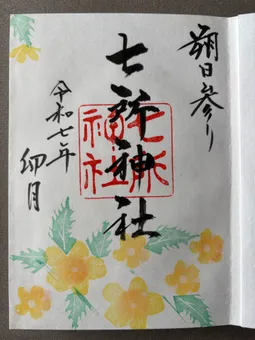 朔日参り
七所神社
七所神社
令和七年
卯月